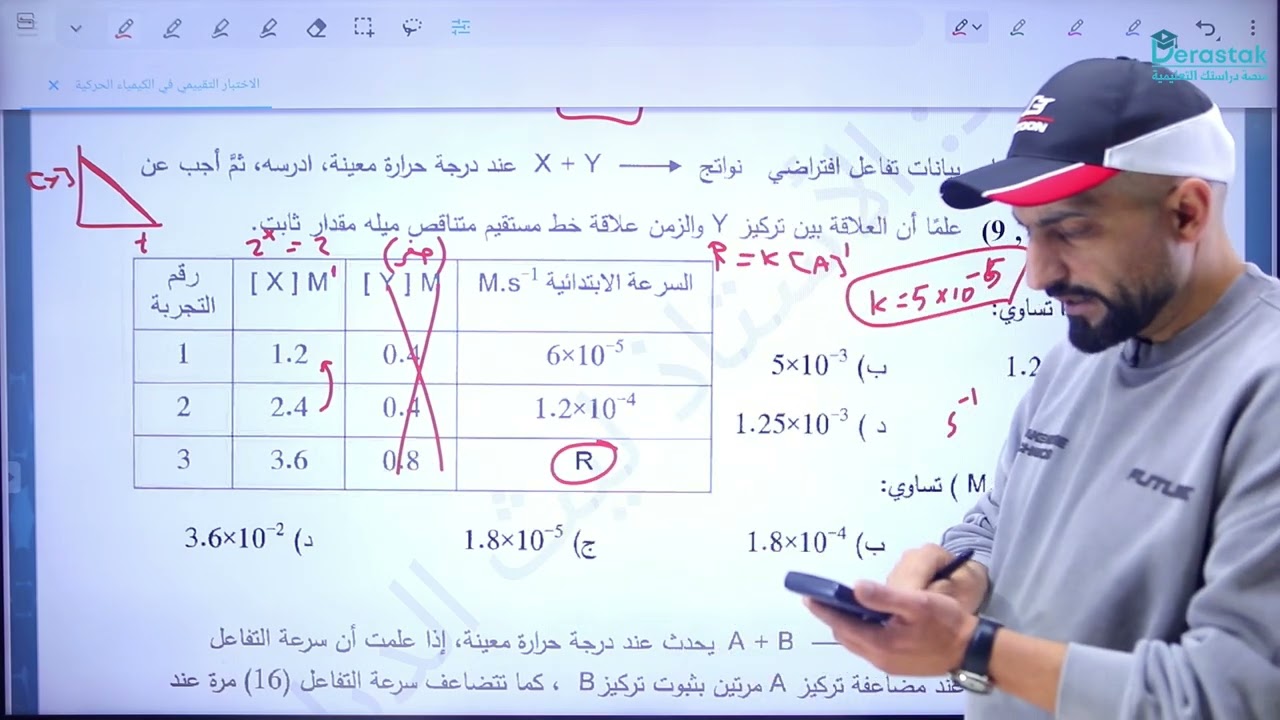 Derastak
منصة دراستك التعليمية
الاختبار التقييمي في الكيمياء الحركية
بيانات تفاعل افتراضي X + Y ⟶ نواتج عند درجة حرارة معينة، ادرسه، ثمَّ أجب عن
, 9) علمًا أن العلاقة بين تركيز Y والزمن علاقة خط مستقيم متناقص ميله مقدار ثابت.
[Y]
t
2^x = 2
1
(صفر)
R = K [A]^1
K = 5 × 10^-5
رقم التجربة [ X ] M [ Y ] M السرعة الابتدائية M.s⁻¹
1 1.2 0.4 6×10⁻⁵
2 2.4 0.4 1.2×10⁻⁴
3 3.6 0.8 R
تساوي:
1.2
ب) 5×10⁻³
د ) 1.25×10⁻³
s^-1
M ) تساوي:
ب) 1.8×10⁻⁴ ج) 1.8×10⁻⁵ د) 3.6×10⁻²
A + B يحدث عند درجة حرارة معينة، إذا علمت أن سرعة التفاعل
عند مضاعفة تركيز A مرتين بثبوت تركيز B ، كما تتضاعف سرعة التفاعل (16) مرة عند